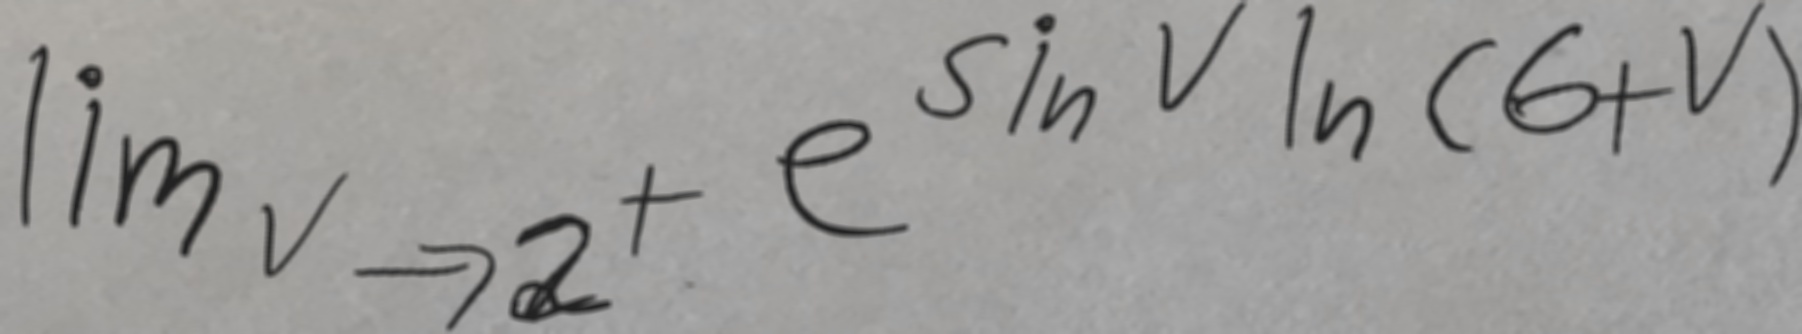 lim_{v→2^+} e^{sin v ln(6+v)}